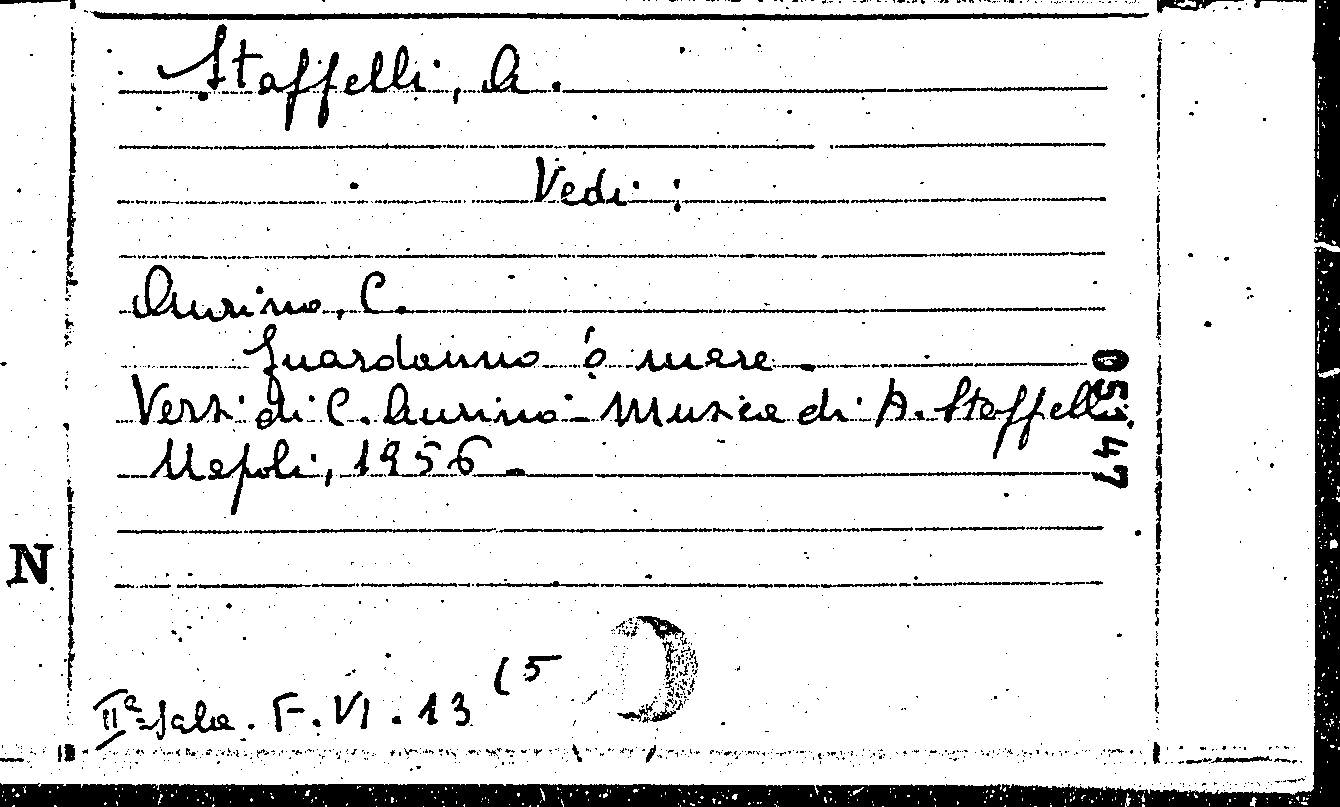 Staffelli, A.
Vedi:
Aurino, C.
Guardanno 'o mare.
Versi di C. Aurino - Musica di A. Staffelli
Napoli, 1956.
N
051147
IIª Sala. F. VI. 13 (5